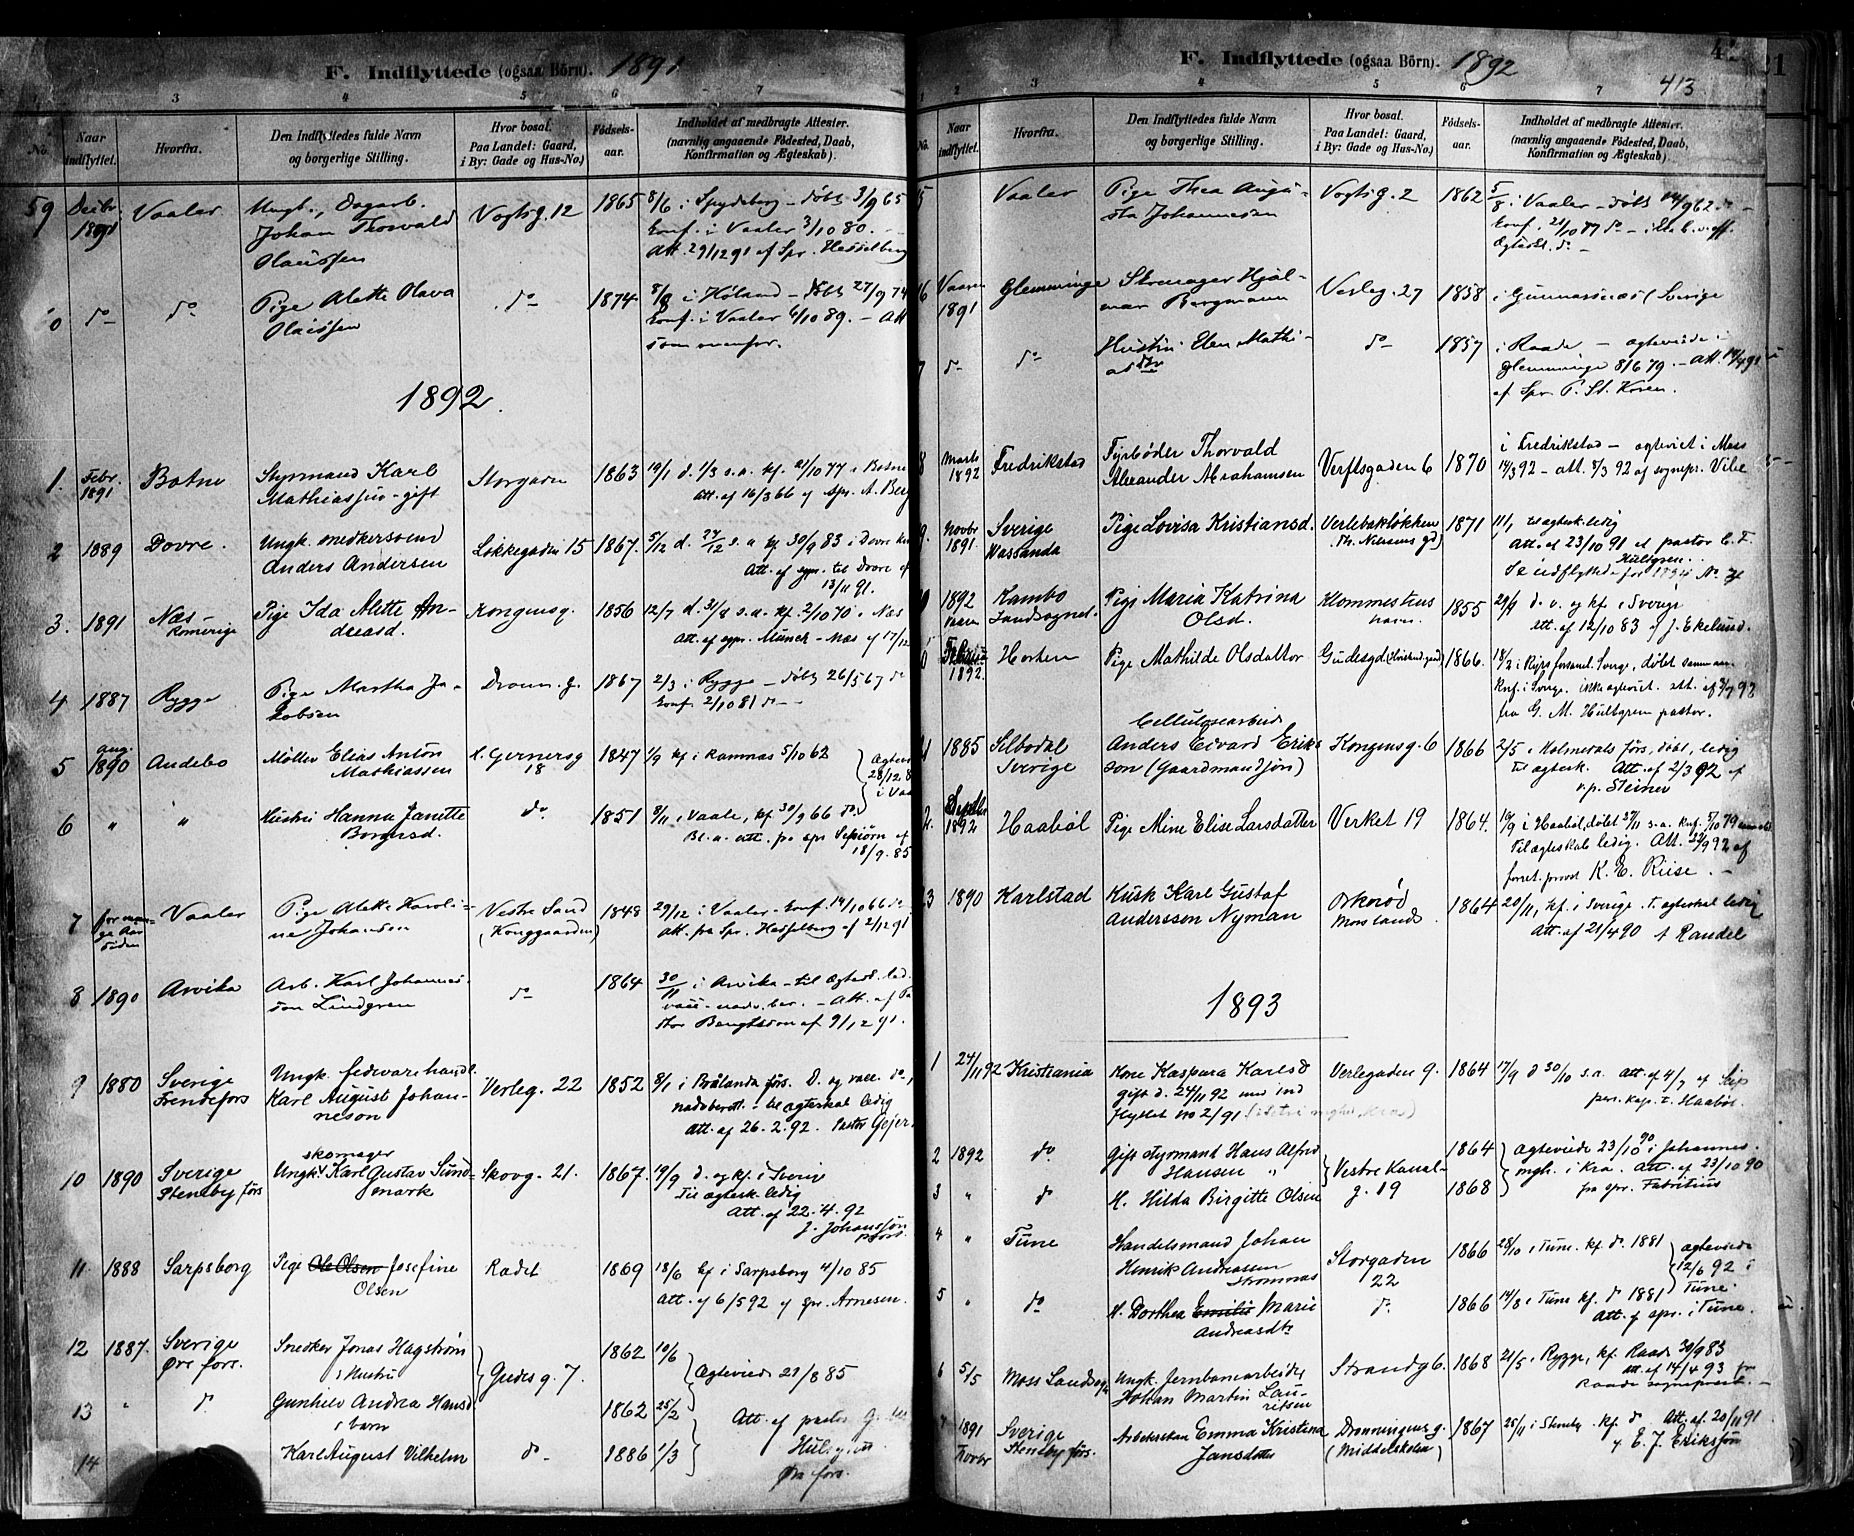 F. Indflyttede (ogsaa Börn). 1891
1 3 4 5 6 7
No. Naar indflyttet. Hvorfra. Den Indflyttedes fulde Navn og borgerlige Stilling. Hvor bosat. Paa Landet: Gaard, i By: Gade og Hus-No. Födsels-aar. Indholdet af medbragte Attester. (navnlig angaaende Födested, Daab, Konfirmation og Ægteskab).
59 Decbr. 1891 Vaaler Ungk., Dagarb. Johan Thorvald Olaissen Vogtsg. 12 1865 8/6 i Spydeberg – döbt 3/9 65
konf. i Vaaler 3/10 80.
Att. 29/12 91 af Spr. Hesselberg
do do Pige Alette Olava Olaissen do 1874 8/8 i Höland – döbt 27/9 74
konf. i Vaaler 6/10 89. – Att
som ovenfor.
1892
1. Febr. 1891 Botne Styrmand Karl Mathiassen – gift Storgaden 1863 19/1 d. 1/3 s.a. kf. 21/10 77 i Botne
Att. af 16/3 66 af spr. A. Berg
2 1889 Dovre. Ungk. snedkersvend Anders Andersen Løkkegaden 15 1867. 5/12 d. 27/12 s.a. kf. 30/9 83 i Dovre
Att. af spr. til Dovre af
13/11 91.
3. 1891 Næs – Romerige Pige Ida Alette Andreasd. Kongensg. 1856 12/7 d. 31/8 s.a. kf. 2/10 70 i Næs
Att. af spr. Münch – Næs af 17/12
4 1887 Rygge Pige Martha Jakobsen Dronn. g. 1867 2/3 i Rygge – döbt 26/5 67 do
konf. 2/10 81 do –
5 aug. 1890 Andebo Møller Elias Anton Mathiassen H. Gernersg 18 1847 1/9 kf i Ramnæs 5/10 62
6 " " Hustru Hanna Janette Borgersd. do 1851 8/11 i Vaale, kf 30/9 66 do.
Bl. a. att. fra spr
18/9. 85
7 for mange Aar siden Vaaler Pige Alette Karoline Johansen Vestre Sand (Konggaarden) 1848 29/12 i Vaaler – konf. 14/10 66 do
Att. fra Spr. Hesselberg af 2/12 91
8 1890 Arvika Arb. Karl Johannesson Lindgren do 1864 30/11 i Arvika – til Ægtesk. led.
vacc. nadv. ber. – Att. af Pastor Bengtsson af 9/12 91.
9 1880 Sverige Frendefors Ungk. fedevarehandl. Karl August Johanneson Verleg. 22 1852 8/1 i Brålanda förs. D. og vacc. do,
nadvberet. – til ægteskab ledig
Att. af 26. 2. 92. Pastor Gejer
10 1890 Sverige Steneby förs skomager Ungk. Karl Gustav Sundmark Skovg. 21. 1867. 19/9 d. og kf. i Sverige
Til ægtesk. ledig
Att. af 22. 4. 92
J. Johansson
11. 1888 Sarpsborg Pige Ole Olsen Josefine Olsen Radet 1869 18/6 kf i Sarpsborg 4/10 85
Att. af 6/5 92 af spr. Arnesen.
12 1887. Sverige Øre fors. Snedker Jonas Hagstrøm Gudes g. 7. 1862 10/6 Ægteviede 21/8 85
, Hustru
13 " do Gunhild Andrea Hansd 1862 25/2 Att. af pastor
, barn
14 Karl August Vilhelm do 1886 1/3 Øra fors.
F. Indflyttede (ogsaa Börn). 1892
413
1 2 3 4 5 6 7
No. Naar indflyttet. Hvorfra. Den Indflyttedes fulde Navn og borgerlige Stilling. Hvor bosat. Paa Landet: Gaard, i By: Gade og Hus-No. Födsels-aar. Indholdet af medbragte Attester. (navnlig angaaende Födested, Daab, Konfirmation og Ægteskab).
5 Vaaler Pige Thea Augusta Johannesen Vogtsg. 2 1862 5/8 i Vaaler – döbt 14/9 62 do –
konf. 21/10 77 do –
Ægtesk. do –
16 Vaaren 1891 Glemminge Skomager Hjalmar Bergmann Verleg. 27 1858 i Gunnarsnæs (Sverige
7 do do Hustru Elen Mathiasdtr do 1857 i Raade – ægteviede i
Glemminge 8/6 79. – Att. 14/4 91
af Spr. P. St. Koren.
8 Marts 1892 Fredrikstad Fyrbøder Thorvald Alexander Abrahamsen Verftsgaden 6 1870 i Fredrikstad – ægteviet i Moss
14/3 92 – att. 8/3 92 af sognepr. Vibe
9. Novbr 1891. Sverige Vassända Pige Lovisa Kristiansd. Verlebakløkken (Th. Nilsens gd) 1871 11/1 til ægtesk. ledig
Att. af 23/10 91 af pastor C. F. Hultgren.
Se udflyttede for 1894 No 7
1892 Kambo Landsognet. Pige Maria Katrina Olsd. Blommestens havn 1855 29/9 d. v. og kf. i Sverige
Att. af 12/10 83 af J. Ekelund.
Februar 1892. Horten Pige Mathilde Olsdatter Gudesgd 1866. 18/2 i
Konf. i Sverige. ikke ægteviet. Att. af
fra G. M. Hultgren pastor.
1885 Silbodal Sverige Cellulosearbeider Anders Edvard Erikson (Gaardmandssøn) Kongensg. 6 1866 2/5 i Holmedals førs, døbt, ledig
til ægtesk. Att. af 2/3 92 af
v.p. Steiner
2. Septbr 1892 Haabøl Pige Mine Elise Larsdatter Verket 19 1864. 19/9 i Haabøl, døbt 27/11 s.a. Knf. 5/10 79
Til ægteskab ledig. Att. 22/9 92 af
forret. provst K. E. Riise. –
3 1890 Karlstad Kusk Karl Gustaf Andersson Nyman Orkerød Moss Lands. 1864 20/11, kf. i Sverige. T. ægteskab ledig
Att. af 21/4 90 af Randel
1893
1 24/11 92 Kristiania Kone Kaspara Karlsd Verlegaden 9. 1864 17/9 d 30/10 s.a. Att. af 4/7 af
gift d. 24/11 92 med ind pers. kap. t. Haabøl.
flyttet no 2/91
2 1892 do Gift styrmand Hans Alfred Hansen " Vestre Kanalg. 19 1864 Ægteviede 23/10 90 i Johannes
mgh. i Kra. Att. af 23/10 90
3 " do H. Hilda Birgitte Olsen 1868 fra spr. Fabritius
4 " Tune Handelsmand Johan Henrik Andreassen Strømnæs Storgaden 22 1866 28/10 i Tune. kf. do 1881 ægteviede
12/6 92 i
Tune
5 " do H. Dorthea Emilie Marie Andreasdtr do. 1866 14/8 i Tune kf. do 1881
Att. af spr. i Tune.
6 5/5 Moss Landsogn Ungk. Jernbanearbeider Johan Martin Lauritsen Strandg 6. 1868 21/5 i Rygge, kf. Raade 30/9 83
Att. af 14/4 93 fr
Raade sogneprest. –
7 1891 Novbr Sverige Steneby förs. Arbeiderske Emma Kristina Jansdotter Dronningens g. (Middelskolen) 1867 25/11 i Steneby. kf. do Att. af. 20/11 91
af E. J. Eriksson